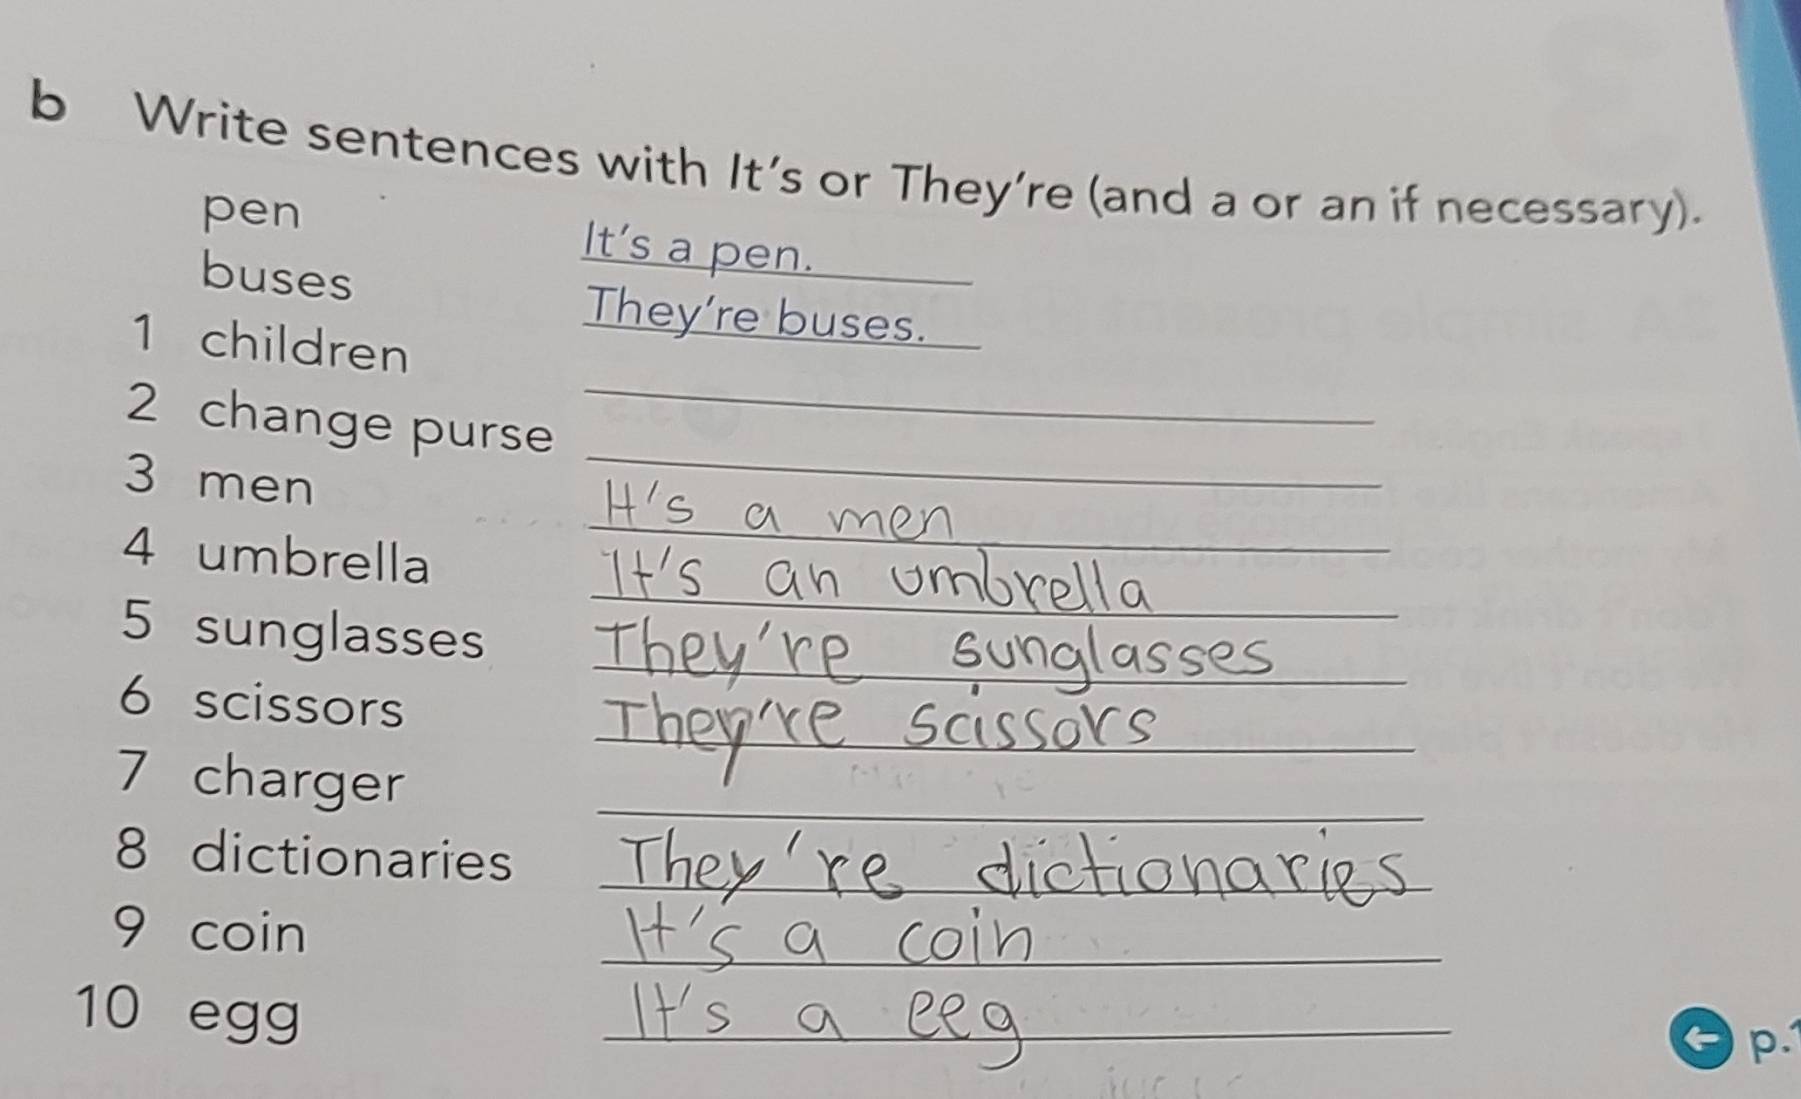 b Write sentences with It's or They're (and a or an if necessary).
pen It's a pen.
buses They're buses.
1 children
2 change purse
3 men It's a men
4 umbrella It's an umbrella
5 sunglasses They're sunglasses
6 scissors They're scissors
7 charger
8 dictionaries They're dictionaries
9 coin It's a coin
10 egg It's a eeg
p.1